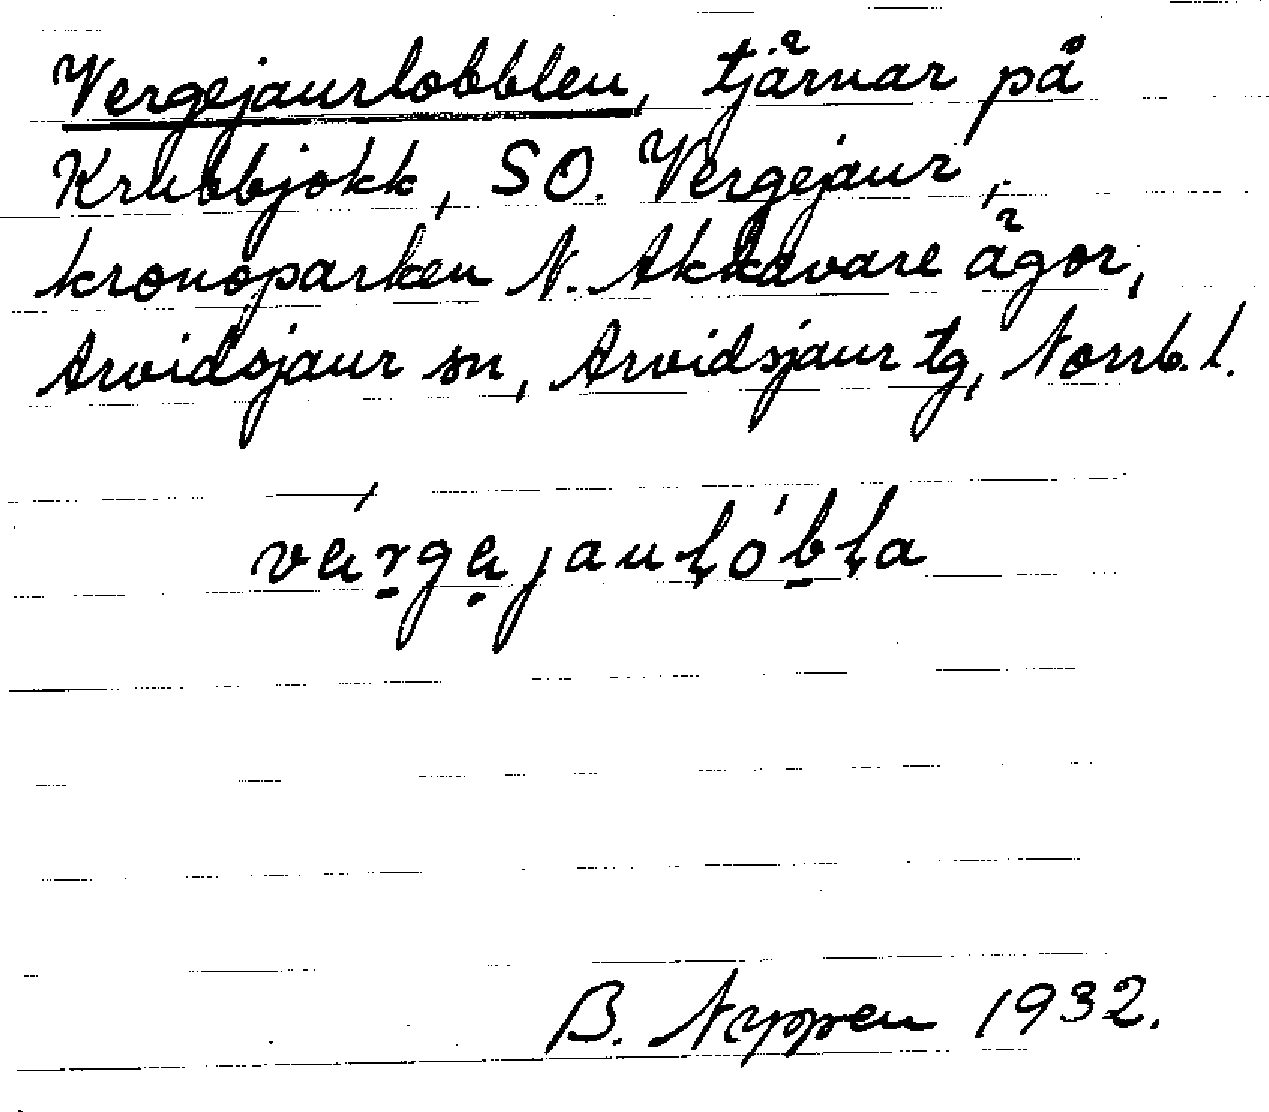 Vergejaurlobblen, tjärnar på
Krubbjokk, SO. Vergejaur,
kronoparken N. Akkavare ägor,
Arvidsjaur sn, Arvidsjaur tg, Norrb. l.
B. Nyppen 1932.